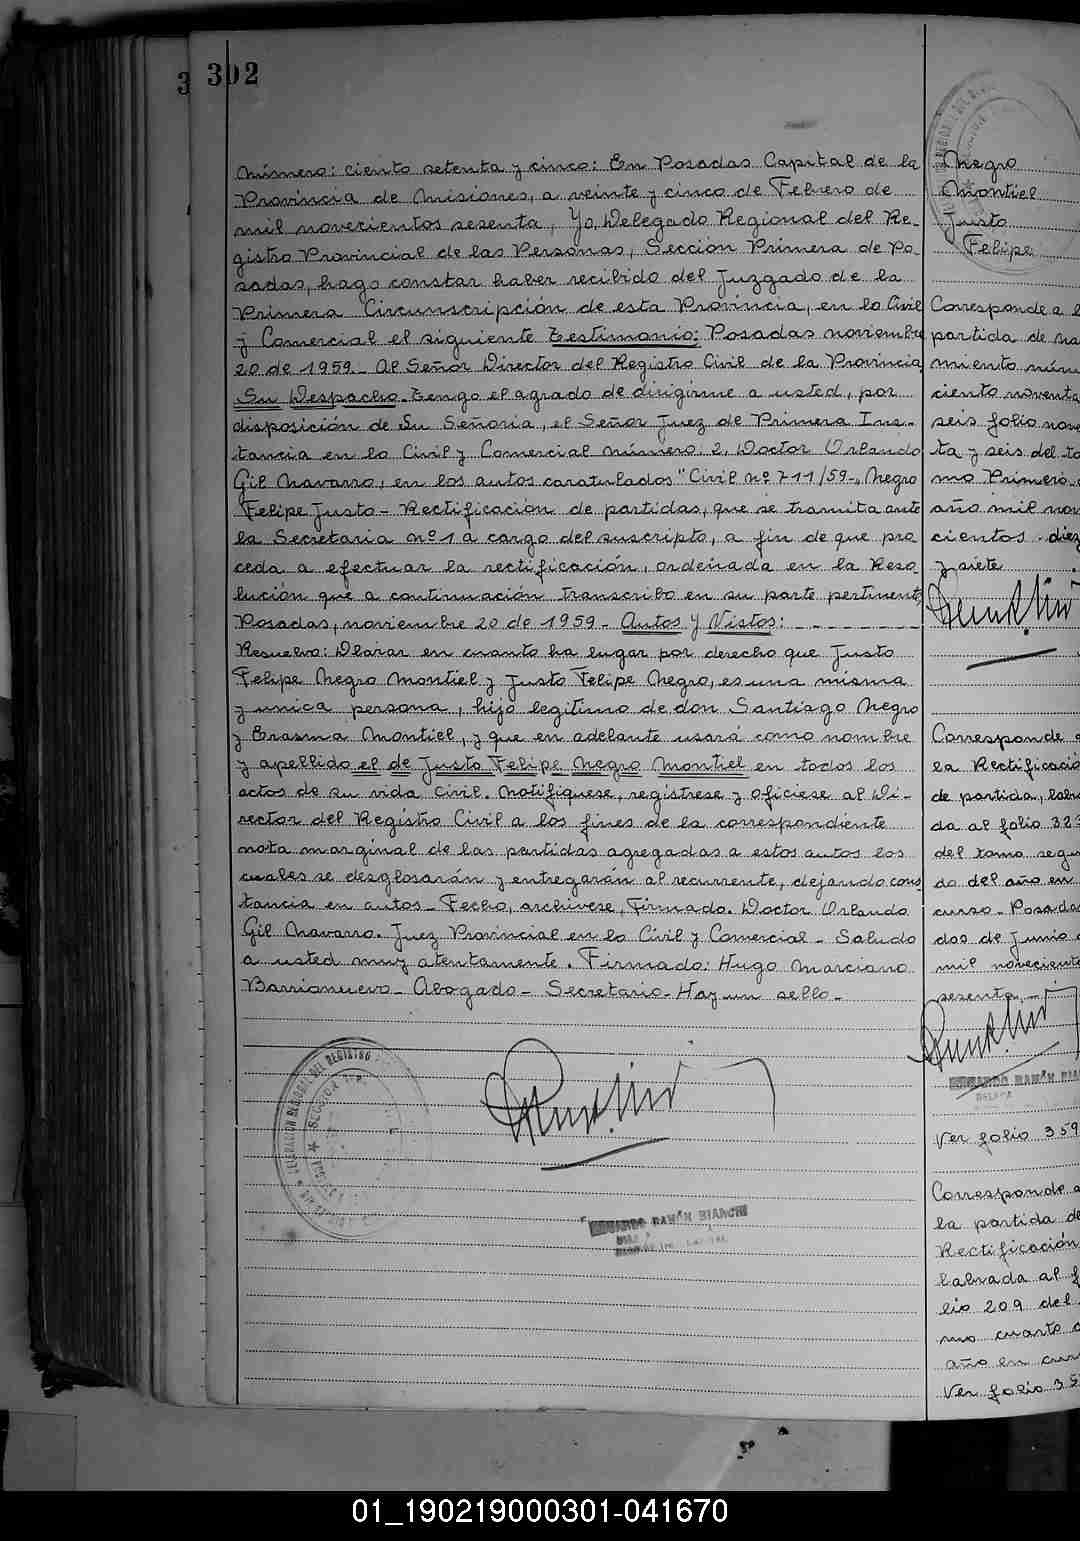 302
Número: ciento setenta y cinco: En Posadas Capital de la
Provincia de Misiones, a veinte y cinco de Febrero de
mil novecientos sesenta, Yo, Delegado Regional del Re-
gistro Provincial de las Personas, Sección Primera de Po-
sadas, hago constar haber recibido del Juzgado de la
Primera Circunscripción de esta Provincia, en lo Civil
y Comercial el siguiente Testimonio: Posadas noviembre
20 de 1959.- Al Señor Director del Registro Civil de la Provincia
Su Despacho. Tengo el agrado de dirigirme a usted, por
disposición de Su Señoria, el Señor Juez de Primera Ins-
tancia en lo Civil y Comercial número: 2, Doctor Orlando
Gil Navarro, en los autos caratulados "Civil nº 711/59-, Negro
Felipe Justo - Rectificación de partidas, que se tramita ante
la Secretaria nº 1 a cargo del suscripto, a fin de que pro
ceda a efectuar la rectificación, ordenada en la Reso
lución que a continuación transcribo en su parte pertinente,
Posadas, noviembre 20 de 1959 - Autos y Vistos:
Resuelvo: Dlarar en cuanto ha lugar por derecho que Justo
Felipe Negro Montiel y Justo Felipe Negro, es una misma
y unica persona, hijo legitimo de don Santiago Negro
y Erasma Montiel, y que en adelante usará como nombre
y apellido el de Justo Felipe Negro Montiel en todos los
actos de su vida civil. Notifiquese, regístrese y oficiese al Di-
rector del Registro Civil a los fines de la correspondiente
nota marginal de las partidas agregadas a estos autos los
cuales se desglosarán y entregarán al recurrente, dejando cons
tancia en autos - Fecho, archívese, Firmado. Doctor Orlando
Gil Navarro. Juez Provincial en lo Civil y Comercial - Saludo
a usted muy atentamente. Firmado: Hugo Marciano
Barrionuevo - Abogado - Secretario - Hay un sello -
DELEGACION REGIONAL DEL REGISTRO
SECCION
EDUARDO RAMÓN BIANCHI
Negro
Montiel
Justo
Felipe
Corresponde a l
partida de na
miento núm
ciento noventa
seis folio nove
ta y seis del to
mo Primero
año mil nov
cientos diez
y siete
Corresponde a
la Rectificació
de partida, labra
da al folio 323
del tomo segun
do del año en
curso - Posadas
dos de Junio d
mil noveciento
sesenta
EDUARDO RAMÓN BIAN
Ver folio 359
Corresponde a
la partida de
Rectificación
labrada al f
lio 209 del
mo cuarto d
año en cur
Ver folio 35
01_190219000301-041670